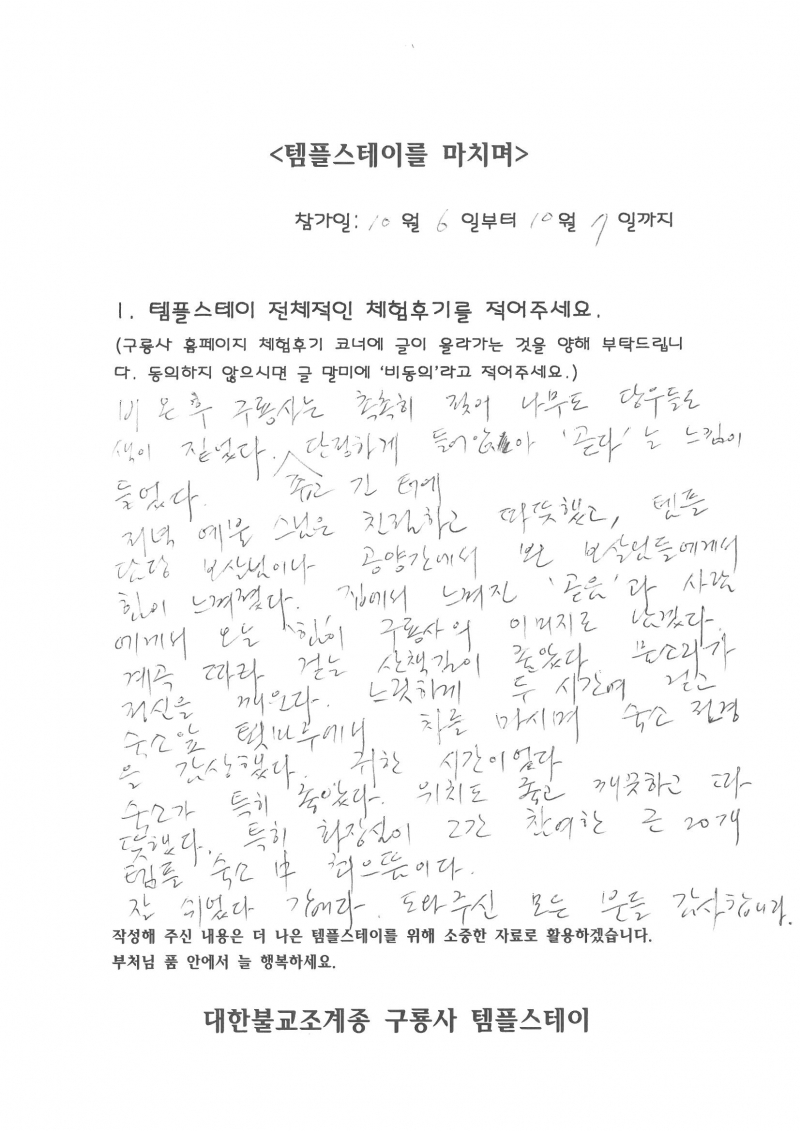 <템플스테이를 마치며>
참가일: 10 월 6 일부터 10 월 7 일까지
1. 템플스테이 전체적인 체험후기를 적어주세요.
(구룡사 홈페이지 체험후기 코너에 글이 올라가는 것을 양해 부탁드립니
다. 동의하지 않으시면 글 말미에 '비동의'라고 적어주세요.)
비 온 후 구룡사는 촉촉히 젖어 나무도 당우들도
색이 짙었다. 단정하게 들어앉아 '곧다'는 느낌이
들었다. 좁고 긴 터에
저녁 예불 스님은 친절하고 따뜻했고, 템플
담당 보살님이나 공양간에서 뵌 보살님들에게서
힘이 느껴졌다. 집에서 느껴진 '곧음'과 사람
에게서 오늘 '힘'이 구룡사의 이미지로 남겼다.
계곡 따라 걷는 산책길이 좋았다. 물소리가
정신을 깨운다. 느릿하게 두 시간여 걷고
숙소앞 툇마루에서 차를 마시며 숙소 전경
을 감상했다. 귀한 시간이었다
숙소가 특히 좋았다. 위치도 좋고 깨끗하고 따
뜻했다. 특히 화장실이 그간 참여한 근 20개
템플 숙소 中 최으뜸이다.
잘 쉬었다 갑니다. 도와주신 모든 분들 감사합니다.
작성해 주신 내용은 더 나은 템플스테이를 위해 소중한 자료로 활용하겠습니다.
부처님 품 안에서 늘 행복하세요.
대한불교조계종 구룡사 템플스테이